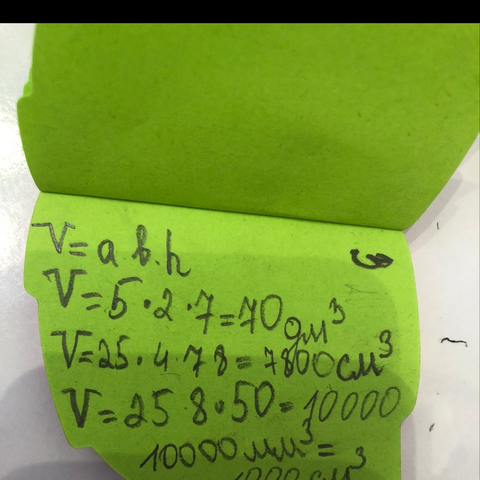 V=a.b.h
3
V=5·2·7=70дм³
V=25·4·78=7800см³
V=25 8·50=10000
10000мм³=
1000см³